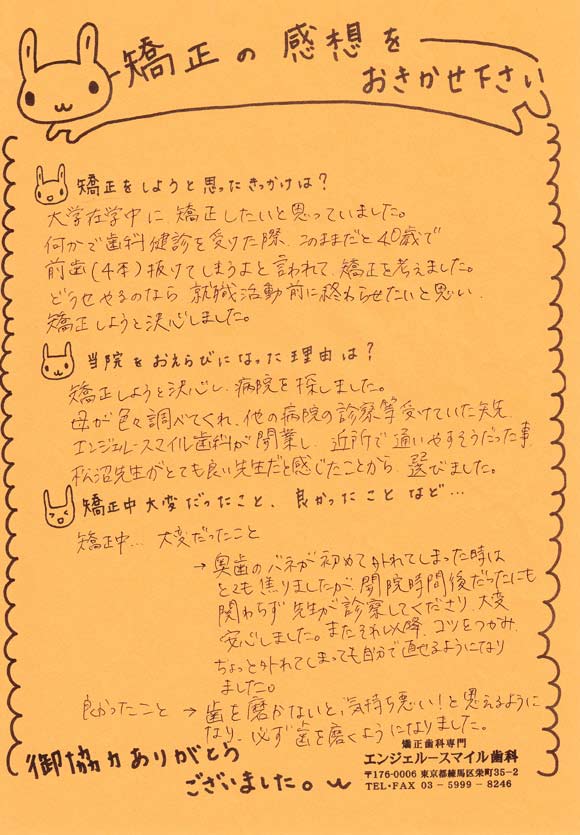 矯正の感想を
おきかせ下さい
矯正をしようと思ったきっかけは？
大学在学中に、矯正したいと思っていました。
何かで歯科健診を受けた際、このままだと40歳で
前歯(4本)抜けてしまうよと言われて、矯正を考えました。
どうせやるのなら 就職活動前に終わらせたいと思い、
矯正しようと決心しました。
当院をおえらびになった理由は？
矯正しようと決心し、病院を探しました。
母が色々調べてくれ、他の病院の診察等受けていた矢先、
エンジェルースマイル歯科が開業し、近所で通いやすそうだった事、
松沼先生がとても良い先生だと感じたことから、選びました。
矯正中大変だったこと、良かったことなど…
矯正中… 大変だったこと
→ 奥歯のバネが初めて外れてしまった時は
とても焦りましたが、閉院時間後だったにも
関わらず 先生が診察してくださり、大変
安心しました。またそれ以降、コツをつかみ、
ちょっと外れてしまっても自分で直せるようになり
ました。
良かったこと → 歯を磨かないと、気持ち悪い！と思えるように
なり、必ず歯を磨くようになりました。
御協力ありがとう
ございました。
矯正歯科専門
エンジェルースマイル歯科
〒176-0006 東京都練馬区栄町35-2
TEL・FAX 03-5999-8246